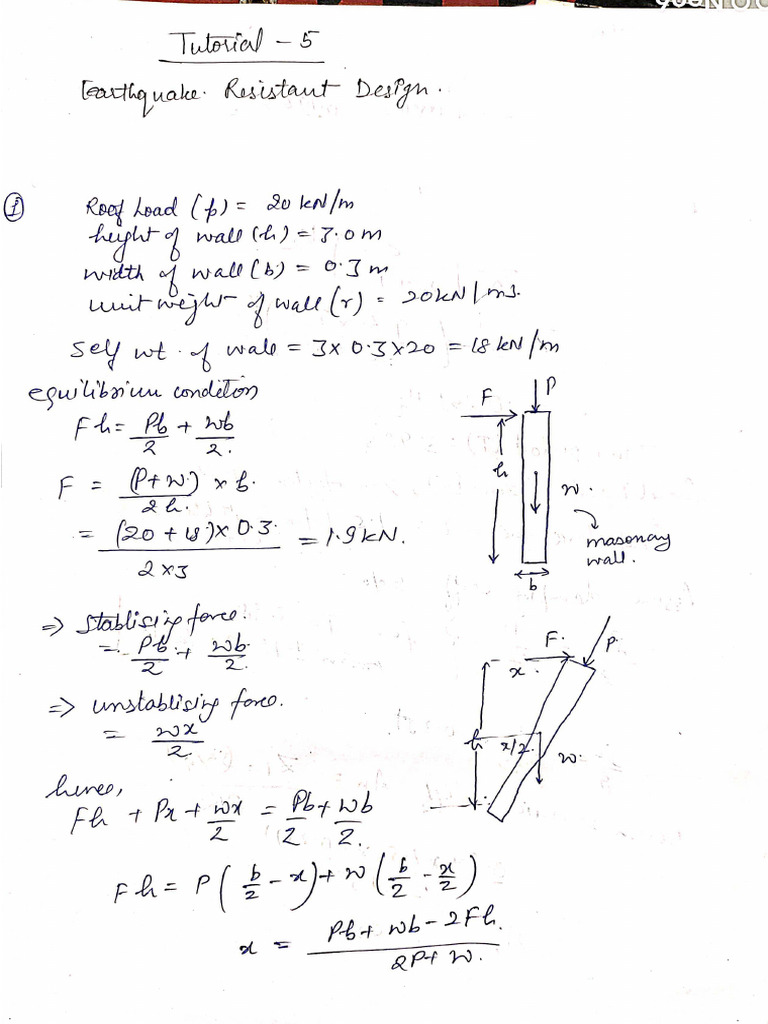 Tutorial - 5
Earthquake Resistant Design.
① Roof Load (p) = 20 kN/m
height of wall (h) = 3.0 m
width of wall (b) = 0.3 m
unit weight of wall (r) = 20 kN/m3.
Self wt. of wall = 3 x 0.3 x 20 = 18 kN/m
equilibrium condition
Fh = Pb/2 + wb/2.
F = (P+w.)/2h. x b.
= (20 + 18) x 0.3./2x3 = 1.9 kN.
F
P
h
w.
masonary
wall.
b
=> stablising force.
= Pb/2 + wb/2.
=> unstablising force.
= wx/2
F.
P.
x.
h
x/2.
w.
hence,
Fh + Px + wx/2 = Pb/2 + wb/2.
Fh = P(b/2 - x) + w(b/2 - x/2)
x = Pb + wb - 2Fh./2P + w.